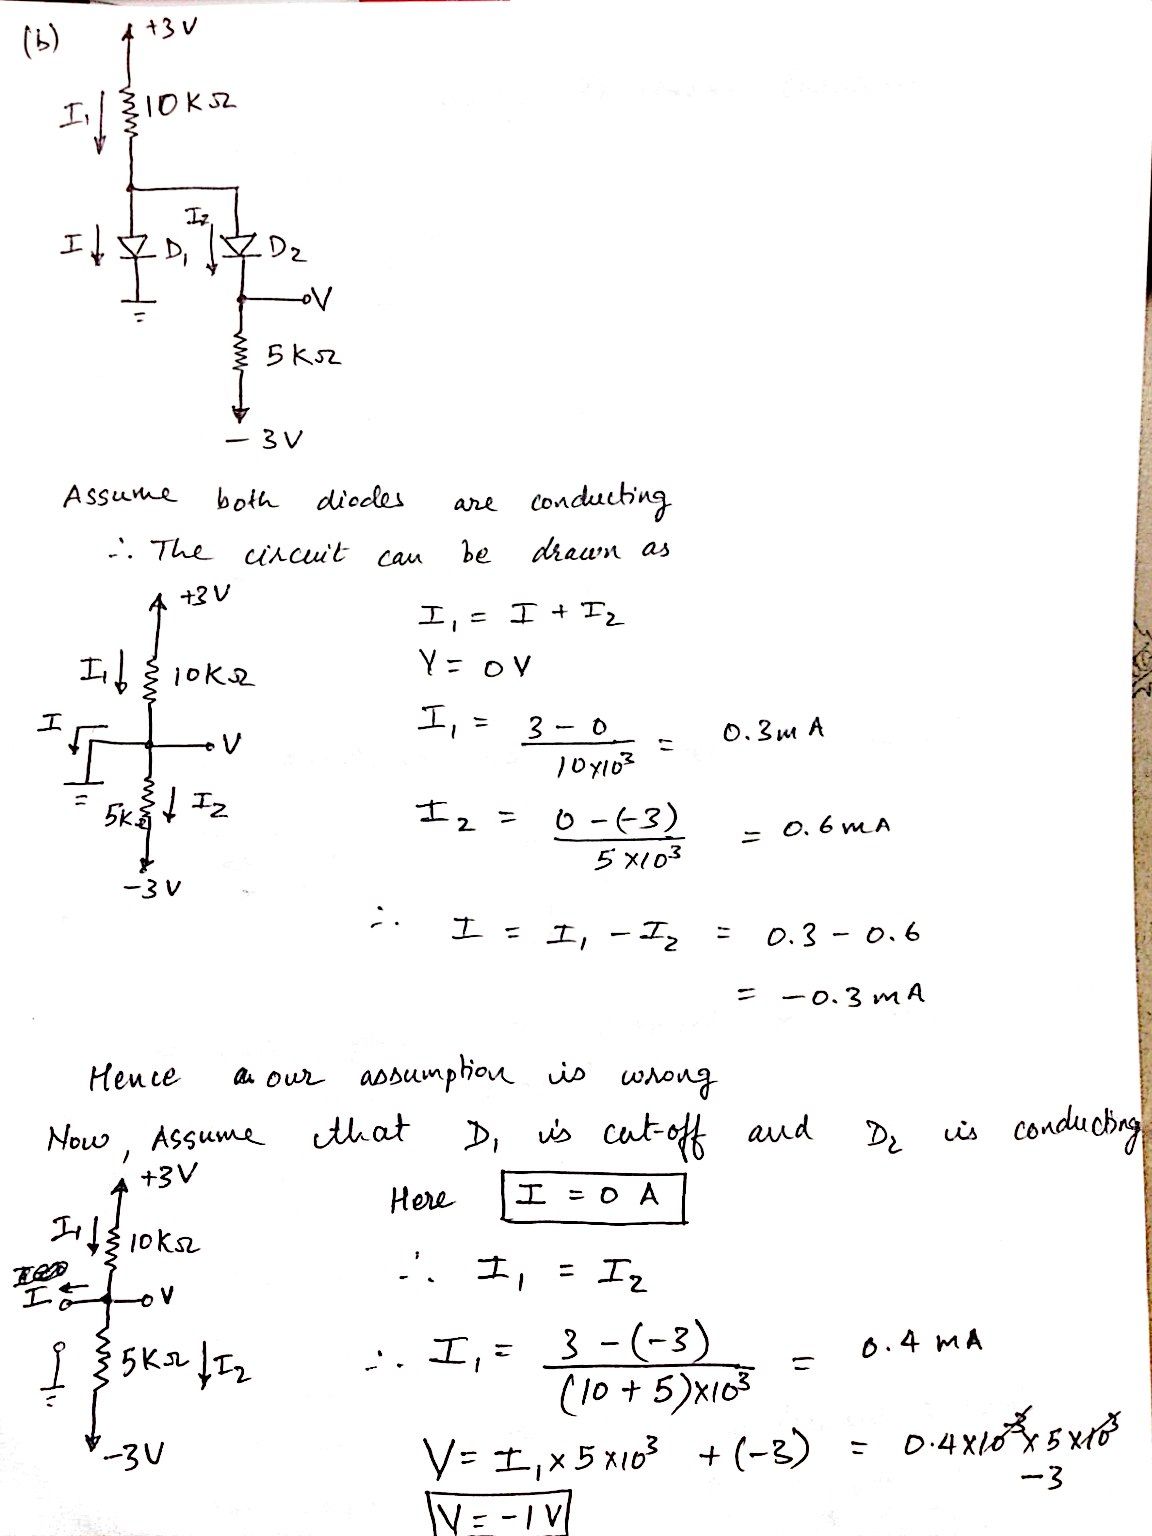 (b)
+3V
I₁ 10KΩ
I D₁ I₂ D₂
V
5KΩ
-3V
Assume both diodes are conducting
∴ The circuit can be drawn as
+3V
I₁ 10KΩ
I V
5KΩ I₂
-3V
I₁ = I + I₂
V = 0V
I₁ = (3 - 0)/(10×10³) = 0.3mA
I₂ = (0 - (-3))/(5×10³) = 0.6mA
∴ I = I₁ - I₂ = 0.3 - 0.6
= -0.3mA
Hence our assumption is wrong
Now, Assume that D₁ is cut-off and D₂ is conducting
+3V
I₁ 10KΩ
I V
5KΩ I₂
-3V
Here I = 0 A
∴ I₁ = I₂
∴ I₁ = (3 - (-3))/((10 + 5)×10³) = 0.4 mA
V = I₁ × 5×10³ + (-3) = 0.4×10⁻³ × 5×10³
-3
V = -1V